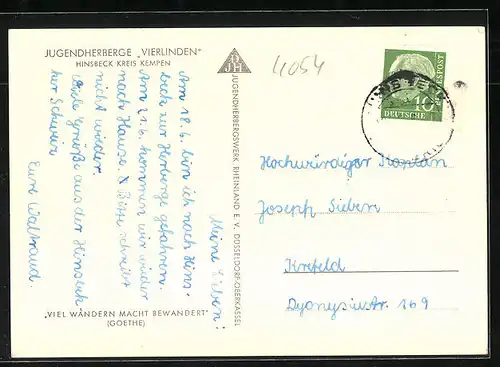 JUGENDHERBERGE „VIERLINDEN"
HINSBECK KREIS KEMPEN
DJH
4054
JUGENDHERBERGSWERK RHEINLAND E. V. DÜSSELDORF-OBERKASSEL
DEUTSCHE
BUNDESPOST
10
Meine Lieben!
Am 18.6. bin ich nach Hins-
beck zur Herberge gefahren.
Am 21.6. kommen wir wieder
nach Hause. Bitte schreibt
nicht wieder.
Viele Grüße aus der Hinsbek
ker Schweiz
Eure Waltraud.
„VIEL WANDERN MACHT BEWANDERT"
(GOETHE)
Hochwürdiger Kaplan
Joseph Sieben
Krefeld
Dyonysiustr. 169